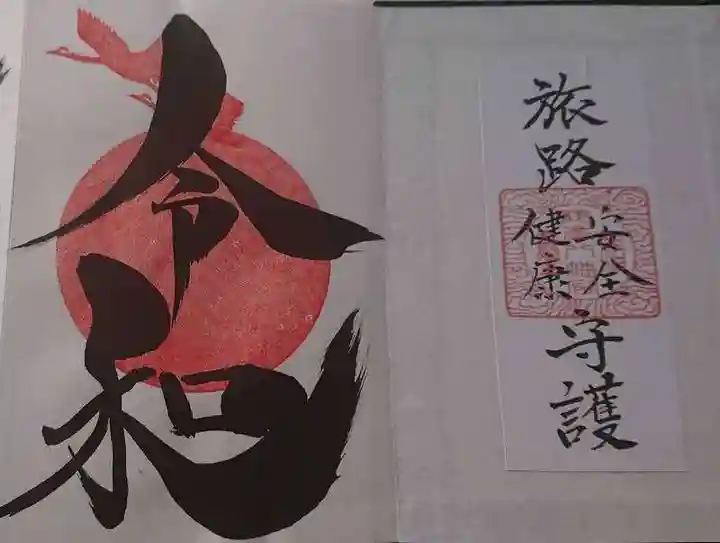 令和
旅路
安全
健康
守護